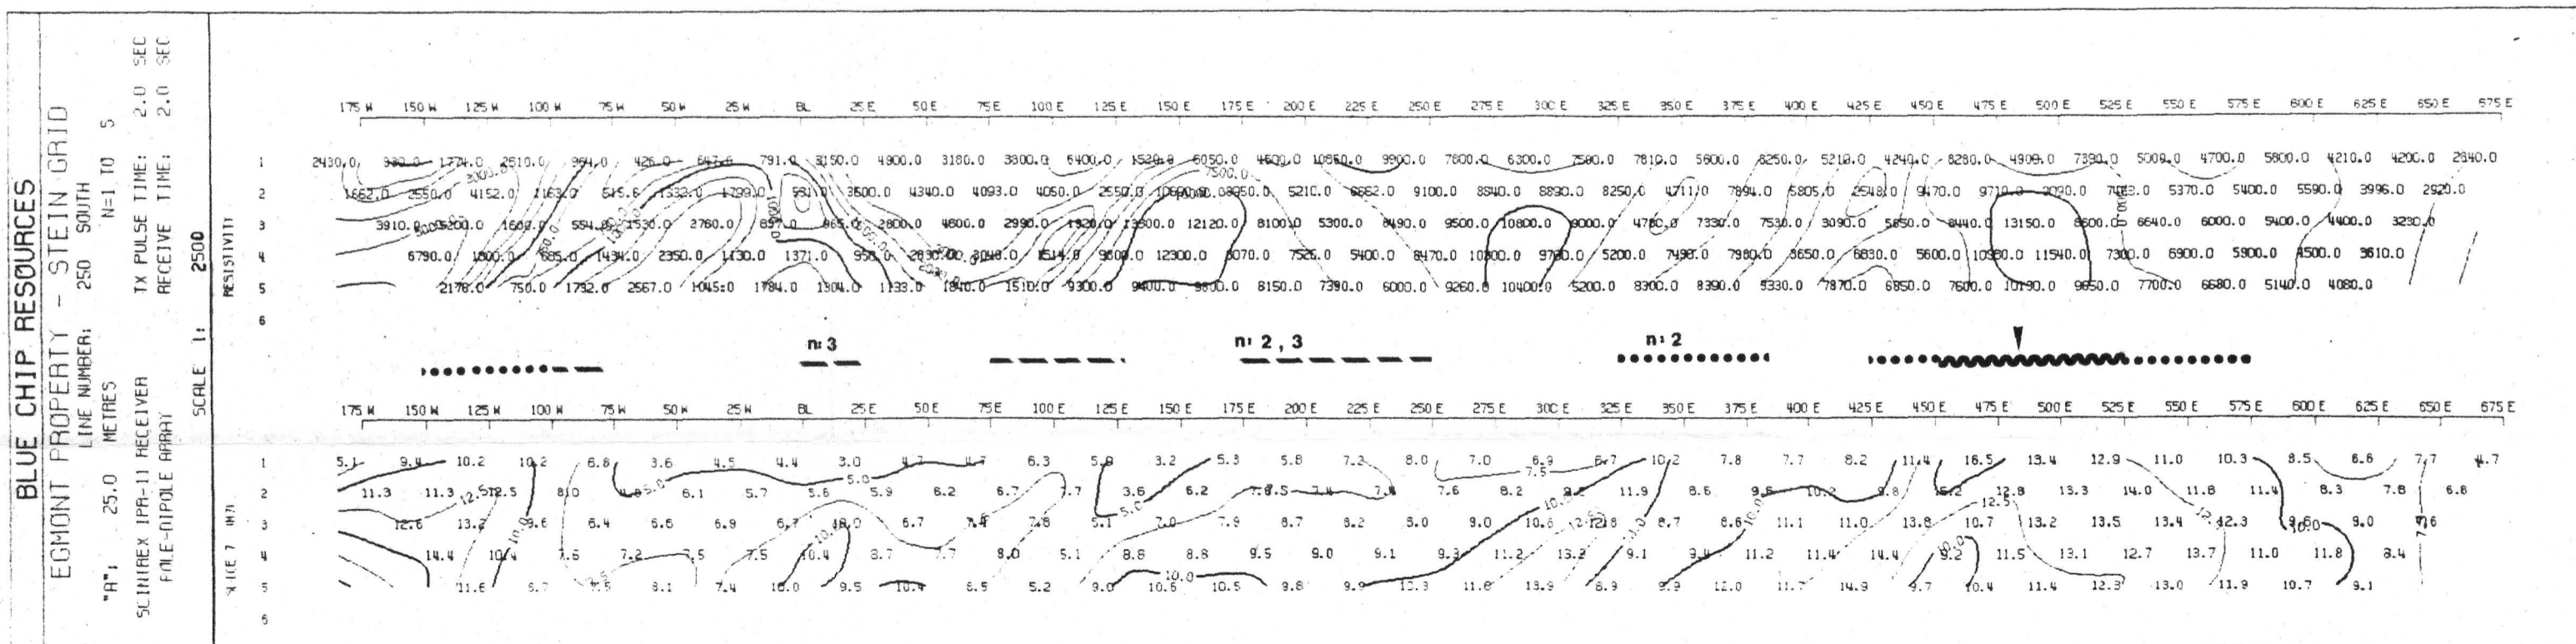 BLUE CHIP RESOURCES
EGMONT PROPERTY - STEIN GRID
LINE NUMBER: 250 SOUTH
"A": 25.0 METRES N=1 TO 5
SCINTREX IPR-11 RECEIVER TX PULSE TIME: 2.0 SEC
POLE-DIPOLE ARRAY RECEIVE TIME: 2.0 SEC
SCALE 1: 2500
RESISTIVITY
175 W 150 W 125 W 100 W 75 W 50 W 25 W BL 25 E 50 E 75 E 100 E 125 E 150 E 175 E 200 E 225 E 250 E 275 E 300 E 325 E 350 E 375 E 400 E 425 E 450 E 475 E 500 E 525 E 550 E 575 E 600 E 625 E 650 E 675 E
1 2430.0 1774.0 2510.0 964.0 426.0 791.0 3150.0 4900.0 3180.0 3300.0 6400.0 1520.0 6050.0 4600.0 10860.0 9900.0 7800.0 6300.0 7580.0 7810.0 5600.0 8250.0 5210.0 4240.0 8280.0 4909.0 7390.0 5009.0 4700.0 5800.0 4210.0 4200.0 2840.0
7500.0
2 1662.0 2550.0 4152.0 1163.0 515.6 1533.0 1799.0 3600.0 4340.0 4093.0 4050.0 2550.0 5210.0 6662.0 9100.0 8940.0 8890.0 8250.0 4711.0 7894.0 5805.0 2548.0 9470.0 9710.0 9090.0 5370.0 5400.0 5590.0 3996.0 2920.0
3 3910.0 5200.0 1600.0 554.6 1530.0 2760.0 897.0 965.0 2800.0 4600.0 2990.0 1320.0 13300.0 12120.0 8100.0 5300.0 8490.0 9500.0 10800.0 9000.0 4780.0 7330.0 7530.0 3090.0 5650.0 8440.0 13150.0 8600.0 6640.0 6000.0 5400.0 4400.0 3230.0
4 6790.0 1800.0 685.0 1434.0 2350.0 1130.0 1371.0 958.0 3040.0 1514.0 9600.0 12300.0 8070.0 7526.0 5400.0 8470.0 10300.0 9780.0 5200.0 7490.0 7980.0 3650.0 6830.0 5600.0 10980.0 11540.0 7300.0 6900.0 5900.0 4500.0 3610.0
5 2178.0 750.0 1732.0 2567.0 1045.0 1784.0 1304.0 1133.0 1840.0 1510.0 9300.0 9400.0 9800.0 8150.0 7390.0 6000.0 9260.0 10400.0 5200.0 8300.0 8390.0 5330.0 7870.0 6850.0 7600.0 10190.0 9650.0 7700.0 6680.0 5140.0 4080.0
6
n:3 n: 2 , 3 n: 2
175 W 150 W 125 W 100 W 75 W 50 W 25 W BL 25 E 50 E 75 E 100 E 125 E 150 E 175 E 200 E 225 E 250 E 275 E 300 E 325 E 350 E 375 E 400 E 425 E 450 E 475 E 500 E 525 E 550 E 575 E 600 E 625 E 650 E 675 E
SLICE 7
1 5.1 9.4 10.2 10.2 6.8 3.6 4.5 4.4 3.0 4.7 4.7 6.3 5.9 3.2 5.3 5.8 7.2 8.0 7.0 6.9 6.7 10.2 7.8 7.7 8.2 11.4 16.5 13.4 12.9 11.0 10.3 8.5 6.6 7.7 4.7
7.5
5.0
2 11.3 11.3 12.5 12.5 8.0 5.0 6.1 5.7 5.6 5.9 6.2 6.7 7.7 3.6 6.2 7.4 7.4 7.6 8.2 9.2 10.0 11.9 8.6 9.6 10.2 9.8 12.8 13.3 14.0 11.8 11.4 8.3 7.8 6.8
3 12.6 13.2 9.6 6.4 6.6 6.9 6.7 10.0 6.7 7.4 7.8 5.1 7.0 7.9 8.7 8.2 8.0 9.0 10.6 12.8 8.7 8.6 11.1 11.0 13.8 10.7 13.2 13.5 13.4 12.3 10.0 9.0 7.6
4 14.4 10.4 7.6 7.2 7.5 7.5 10.4 8.7 7.7 8.0 5.1 8.8 8.8 9.5 9.0 9.1 9.3 11.2 13.2 9.1 9.4 11.2 11.4 14.4 9.2 11.5 13.1 12.7 13.7 11.0 11.8 8.4
5 11.6 8.1 7.4 10.0 9.5 10.4 6.5 5.2 9.0 10.6 10.0 10.5 9.8 9.9 11.6 13.9 8.9 9.9 12.0 11.7 14.9 9.7 10.4 11.4 12.3 13.0 11.9 10.7 9.1
6